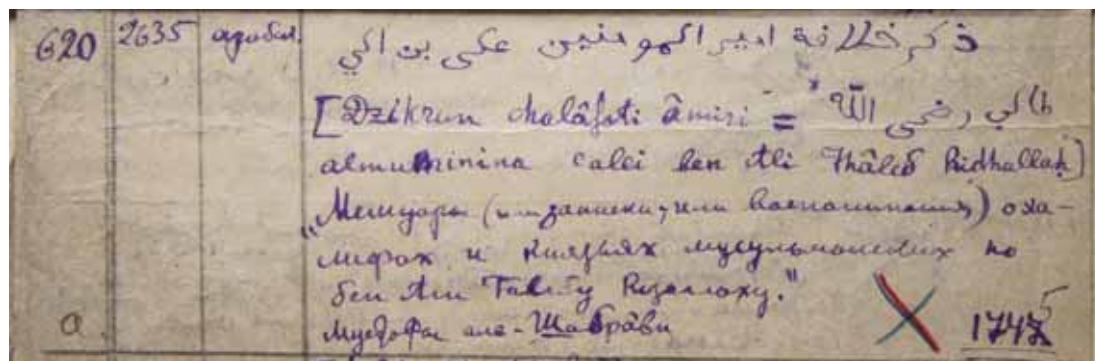 620 2635 арабск. ذكر خلافة امير المومنين على بن الي
[Dzikrun chalâfati âmiri = طالب رضى الله
almuminina calei ben Ali Thâleb Ridhallah]
„Мемуары (или записки, или воспоминания) о ха-
лифах и князьях мусульманских по
бен Али Талибу Ридаллаху."
Мустафа аль-Шабрâви
a. 1747 5